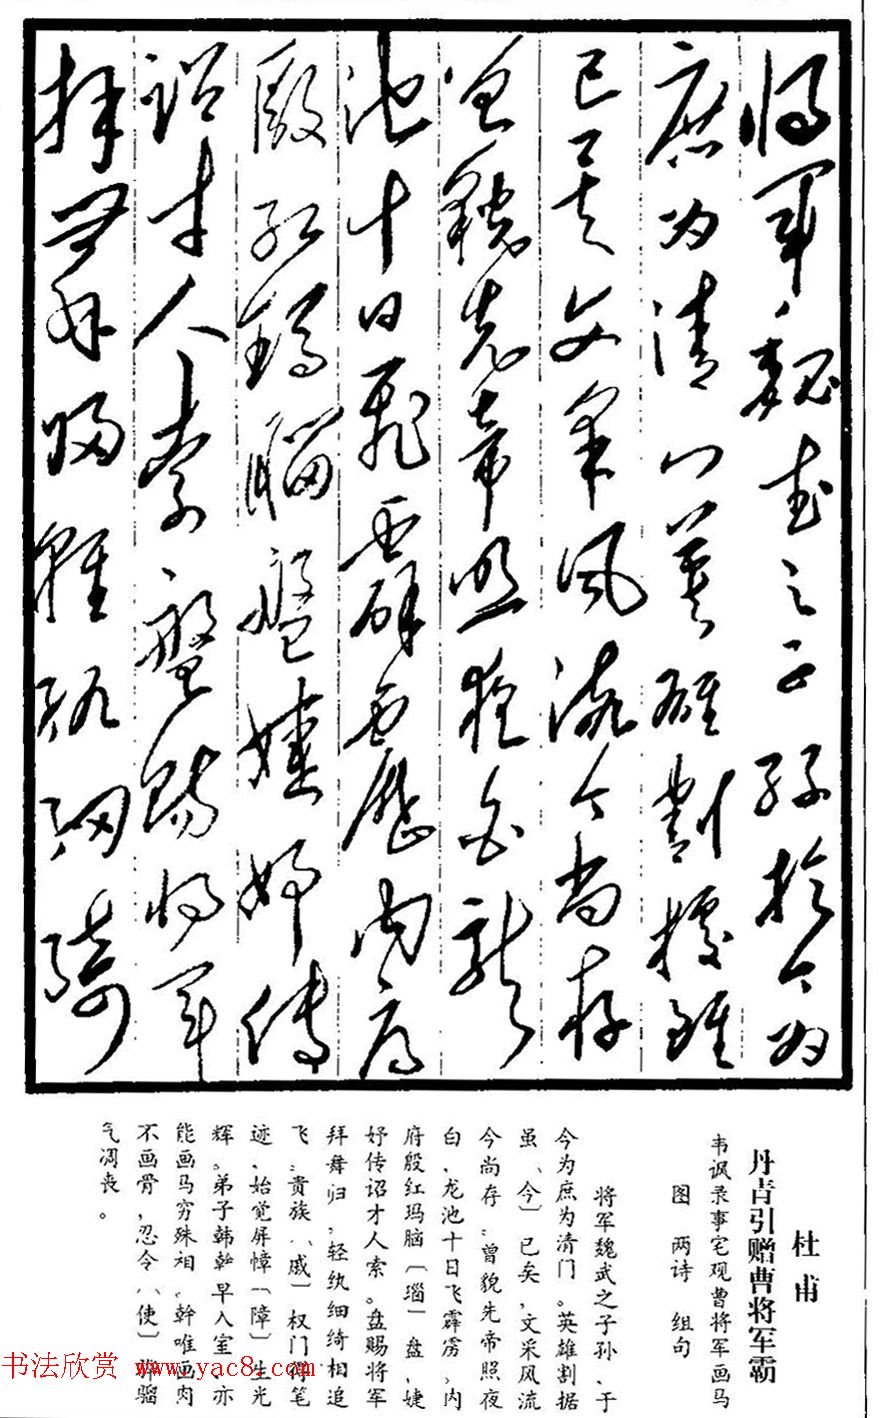 将军魏武之子孙于今为
庶为清门英雄割据虽
已矣文采风流今尚存
曾貌先帝照夜白龙
池十日飞霹雳内府
殷红玛脑盘婕妤传
诏才人索盘赐将军
拜舞归轻纨细绮
杜甫
丹青引赠曹将军霸
韦讽录事宅观曹将军画马
图 两诗 组句
将军魏武之子孙、于
今为庶为清门。英雄割据
虽、〔今〕已矣，文采风流
今尚存。曾貌先帝照夜
白、龙池十日飞霹雳，内
府殷红玛脑〔瑙〕盘、婕
妤传诏才人索。盘赐将军
拜舞归，轻纨细绮相追
飞；贵族〔戚〕权门得笔
迹，始觉屏幛〔障〕生光
辉。弟子韩幹早入室，亦
能画马穷殊相、幹唯画肉
不画骨，忍令〔使〕骅骝
气凋丧。
书法欣赏 www.yac8.com